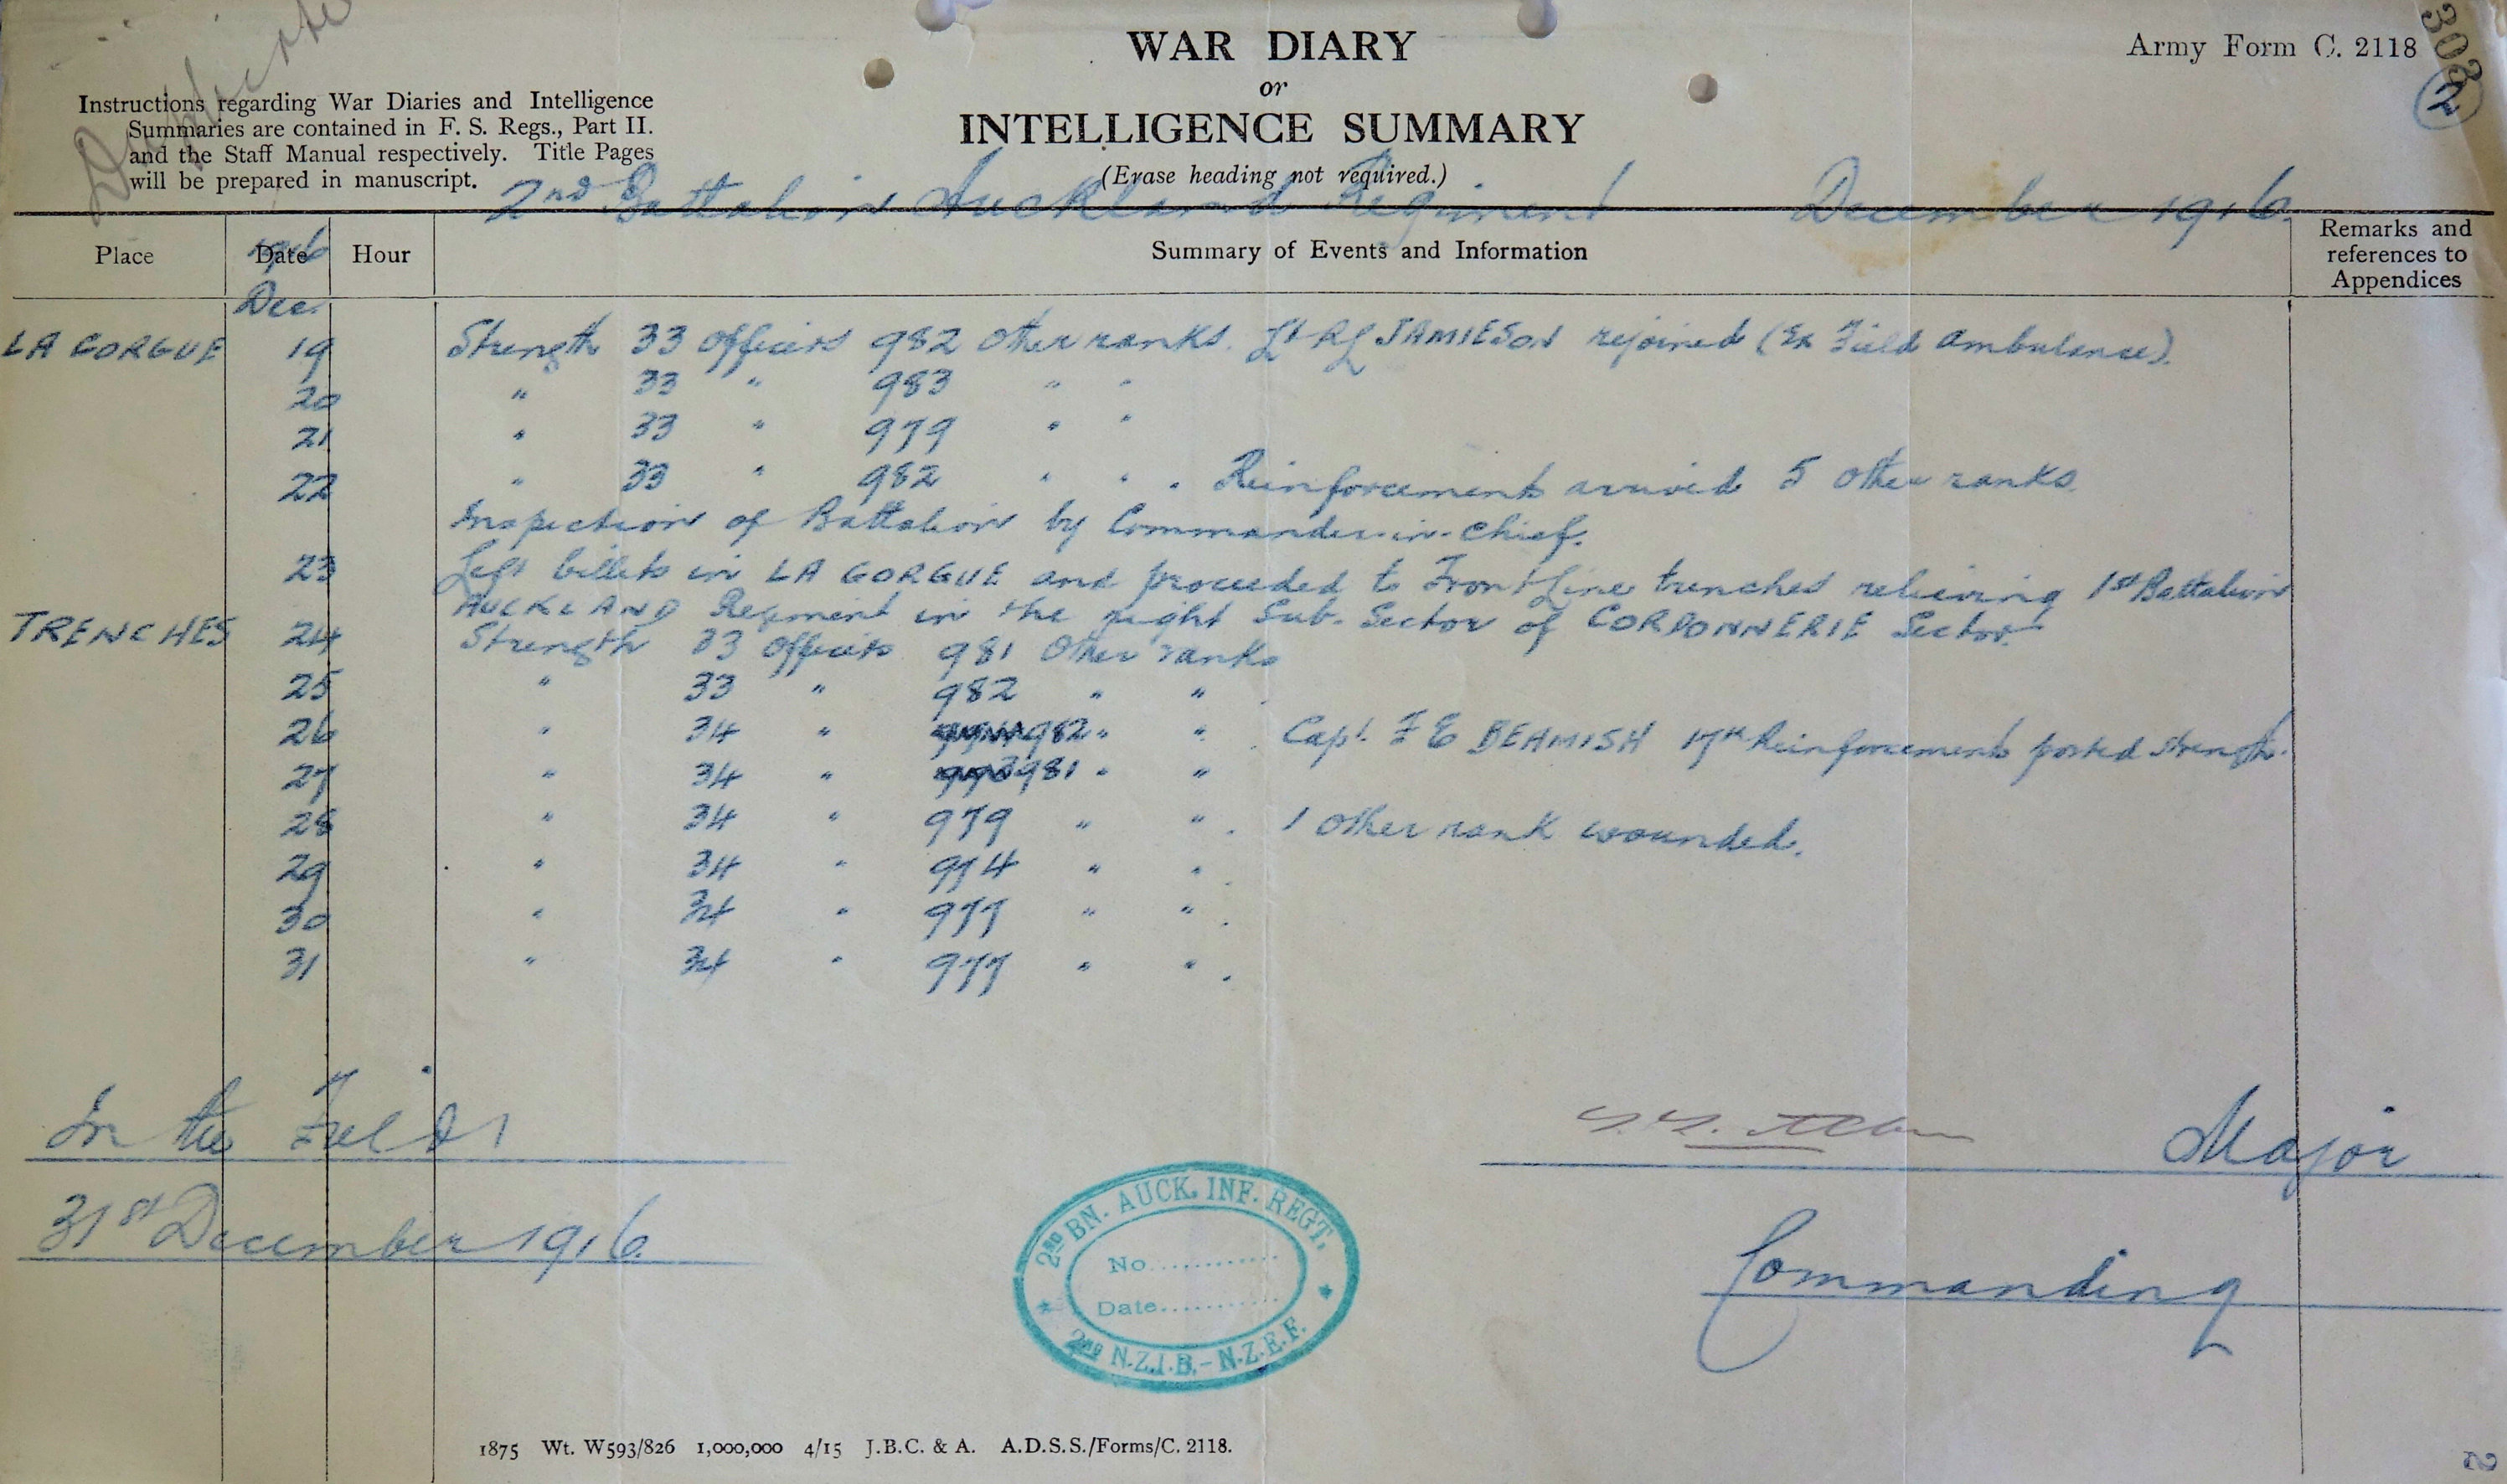 Duplicate
WAR DIARY
or
INTELLIGENCE SUMMARY
(Erase heading not required.)
Army Form C. 2118
302
2
Instructions regarding War Diaries and Intelligence
Summaries are contained in F. S. Regs., Part II.
and the Staff Manual respectively. Title Pages
will be prepared in manuscript.
2nd Battalion Auckland Regiment December 1916
Place Date Hour Summary of Events and Information Remarks and references to Appendices
1916
Dec.
LA GORGUE 19 Strength 33 Officers 982 Other ranks. Lt RL JAMIESON rejoined (Ex Field Ambulance).
20 " 33 " 983 " "
21 " 33 " 979 " "
22 " 33 " 982 " " . Reinforcements arrived 5 Other ranks.
Inspection of Battalion by Commander-in-Chief.
23 Left billets in LA GORGUE and proceeded to Front Line trenches relieving 1st Battalion
AUCKLAND Regiment in the right Sub-Sector of CORDONNERIE Sector.
TRENCHES 24 Strength 33 Officers 981 Other ranks
25 " 33 " 982 " " .
26 " 34 " 982 " " . Capt. F E BEAMISH 17th Reinforcements posted strength.
27 " 34 " 981 " "
28 " 34 " 979 " " . 1 Other rank wounded.
29 " 34 " 974 " " .
30 " 34 " 977 " " .
31 " 34 " 977 " " .
In the Field
31st December 1916.
Major
Commanding
2ND BN. AUCK. INF. REGT.
No............
Date............
2ND N.Z.I.B. - N.Z.E.F.
1875 Wt. W593/826 1,000,000 4/15 J.B.C. & A. A.D.S.S./Forms/C. 2118.